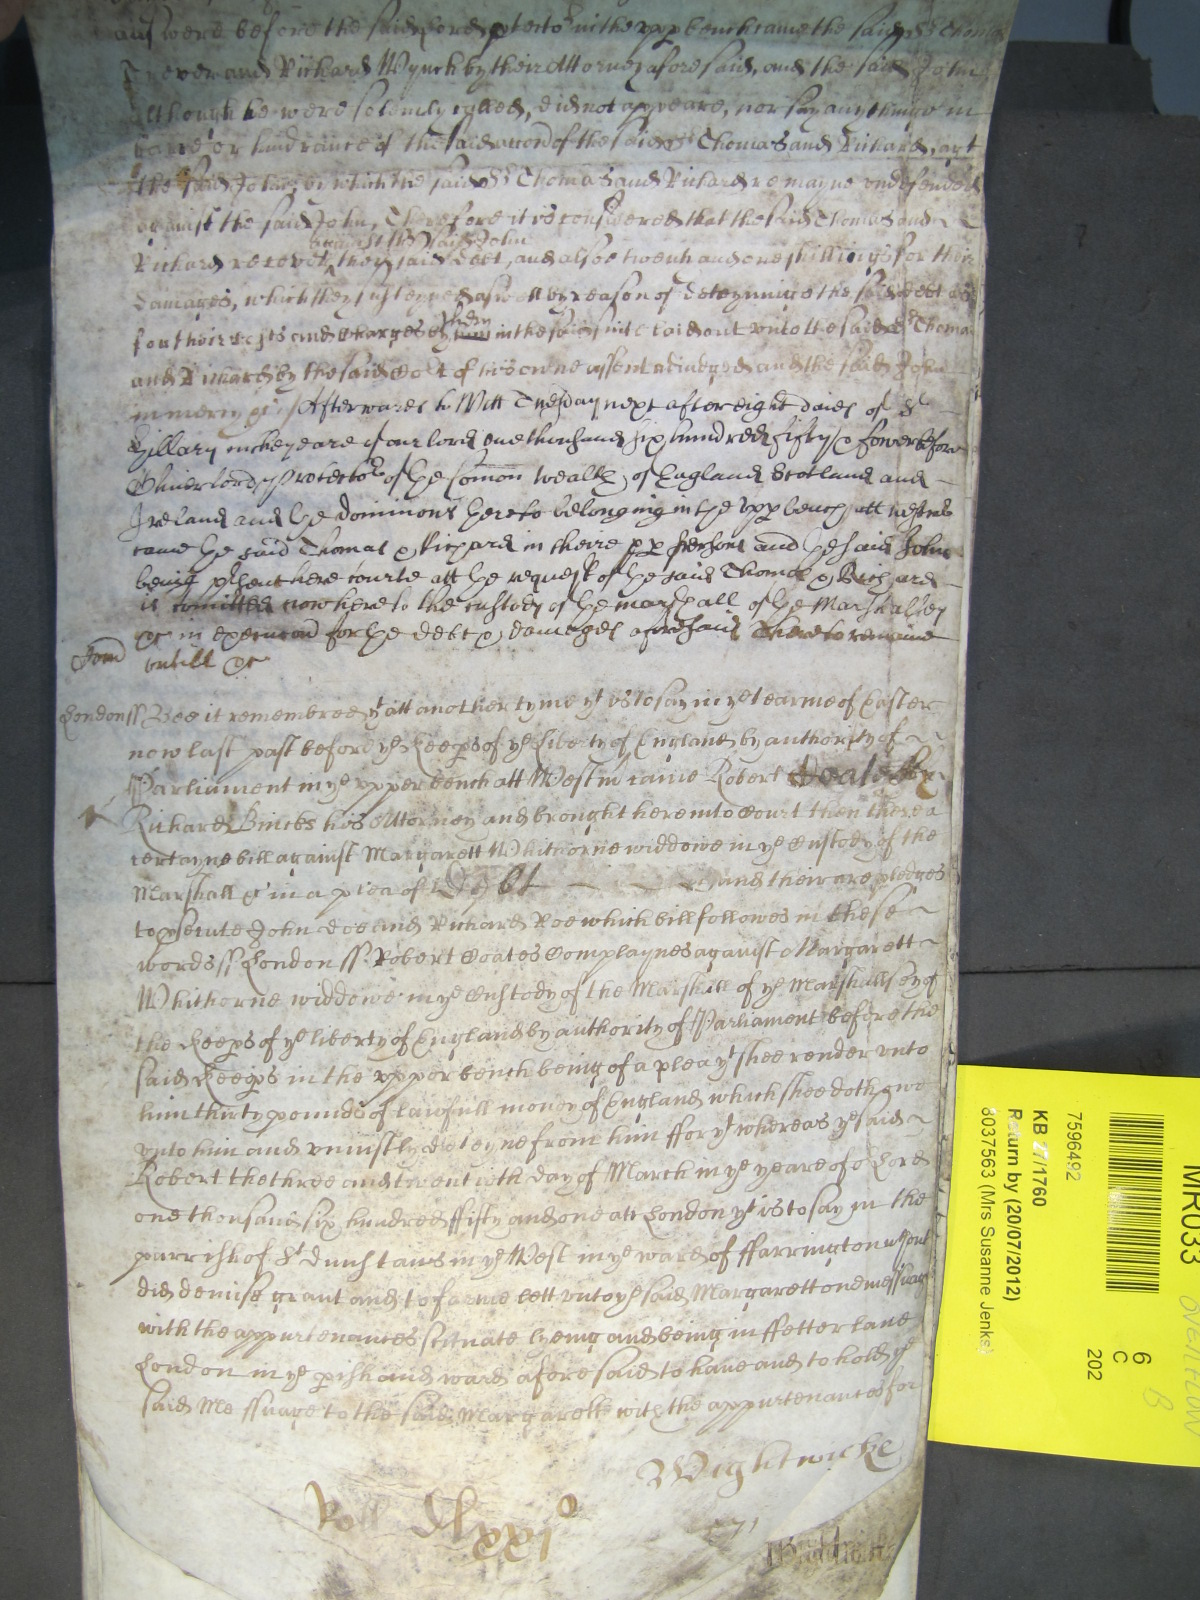 before the said lord in the upp bench came the said Sr Thomas
Trevor and Richard Wynch by their Attorney aforesaid, and the said John
Although he were solemly called, did not appeare, nor say any thinge in
barre or hindrance of the said accon of the said Sr Thomas and Richard, agt
the said John, by which the said Sr Thomas and Richard remayne undefended
against the said John, Therefore it is considered that the said Thomas and
against the said John
Richard recover, their said debt, and alsoe twenty and one shillings for their
damages, which they susteyned aswell by reason of deteyninge the said debt as
for their costs and charges by them in the said suite laid out unto the said Sr Thomas
and Richard by the said Cort of their owne assent adiudged and the said John
in mercy &c Afterwards to Witt Tuesday next after eight daies of St
Hillary in the yeare of our lord one thousand six hundred fifty & fower before
Oliver lord Protector of the Comon wealth of England Scotland and
Ireland and the dominions thereto belonging in the upp bench att
came the said Thomas & Richard in theire pp persons and the said John
being psent here courte att the request of the said Thomas & Richard
is comitted now here to the custody of the marshall of the Marshalsey
&c in execucon for the debt & damages aforesaid There to remaine
untill &c
London ss Bee it remembred yt att another tyme yt is to say in ye tearme of Easter
now last past before ye Keeps of ye liberty of England by authority of
Parliament in ye upper bench att Westmr came Robert Coates by
Richard Bincks his Attorney and brought here into Court then there a
certayne bill against Margarett Whithorne widdowe in ye Custody of the
Marshall &c in a plea of Debt and their are pledges
to psecute John Doe and Richard Roe which bill followes in these
words ss London ss Robert Coates Complaynes against Margarett
Whithorne widdowe in ye Custody of the Marshall of ye Marshallsey of
the Keeps of ye liberty of England by authority of Parliament before the
said Keeps in the upper bench being of a plea yt shee render unto
him thirty pounds of lawfull money of England which shee doth owe
unto him and uniustly deteyne from him ffor yt whereas ye said
Robert the three and twentieth day of March in ye yeare of or Lord
one thousand six hundred ffifty and one att London yt is to say in the
parrish of St Dunstans in ye West in ye ward of ffarrington wthout
did demise grant and to farme lett unto ye said Margarett one messuage
with the appurtenances scituate lyeing and being in ffetter lane
London in ye pish and ward aforesaid to have and to hold ye
said Messuage to the said Margarett with the appurtenances for
Wightwicke
Roll
571
MR033
6
C
202
7596492
KB 27/1760
Return by (20/07/2012)
8037563 (Mrs Susanne Jenks)